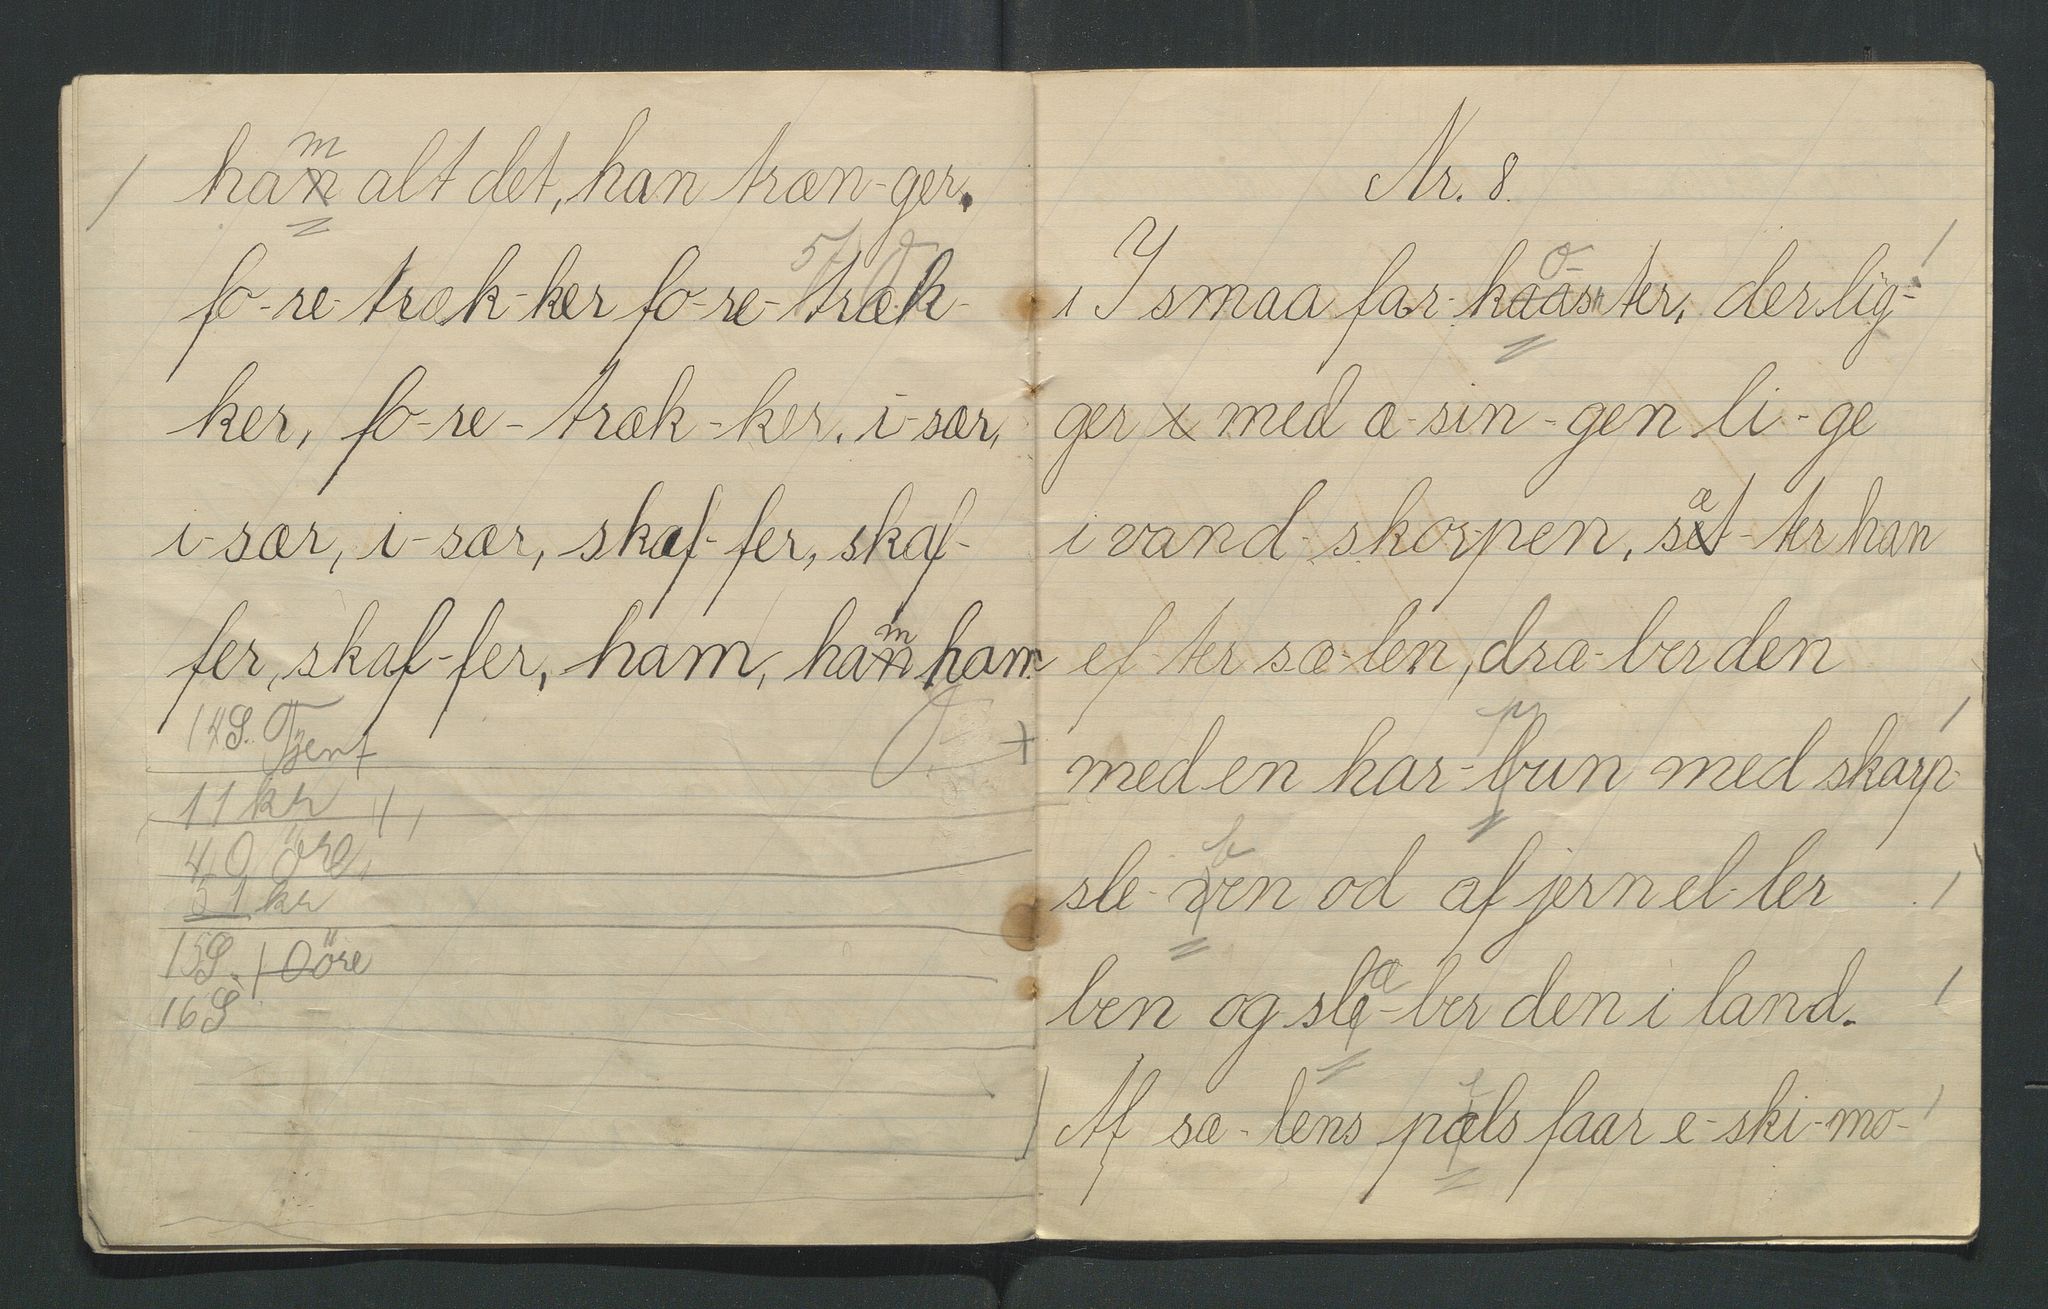 ham alt det, han træn-ger.
fo-re-træk-ker fo-re-træk-
ker, fo-re-træk-ker. i-sær,
i-sær, i-sær, skaf-fer, skaf-
fer, skaf-fer, ham, ham ham
14S. Tjent
11 kr
40 öre,
51 kr
15S. 10öre
16S
Nr. 8.
I smaa far-kos ter, der lig-
ger med æ-sin-gen li-ge
i vand-skorpen, sæt-ter han
ef-ter sæ-len, dræ-ber den
med en har-pun med skarp-
sle-ben od af jern el-ler
ben og slæ-ber den i land.
Af sæ-lens pels faar e-ski-mo-